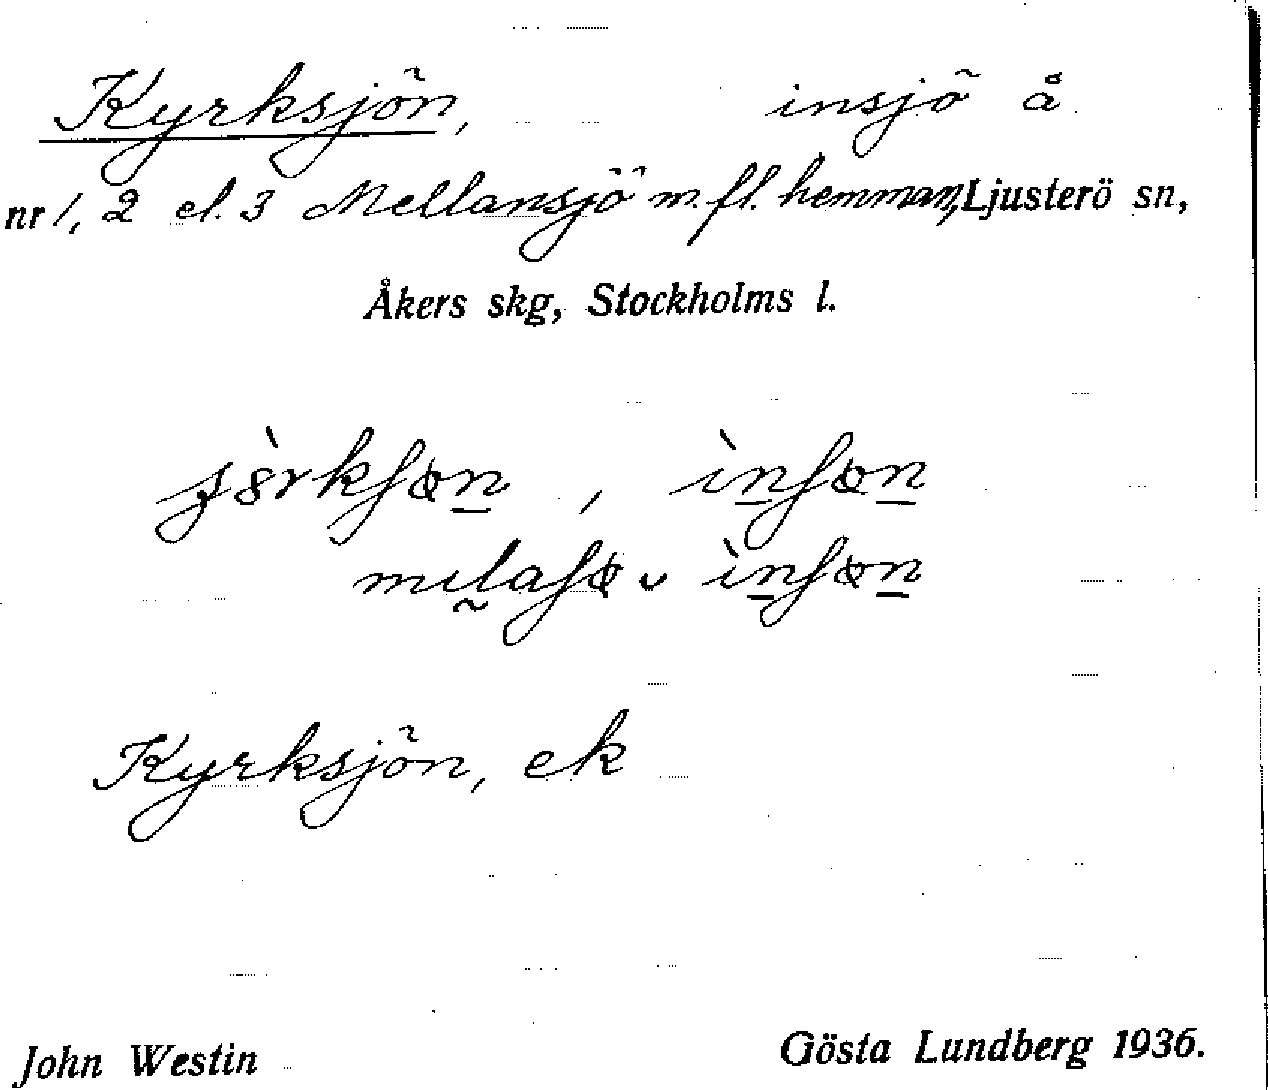 Kyrksjön, insjö å
nr 1, 2 el. 3 Mellansjö m. fl. hemman, Ljusterö sn,
Åkers skg, Stockholms l.
Kyrksjön, ek
John Westin Gösta Lundberg 1936.